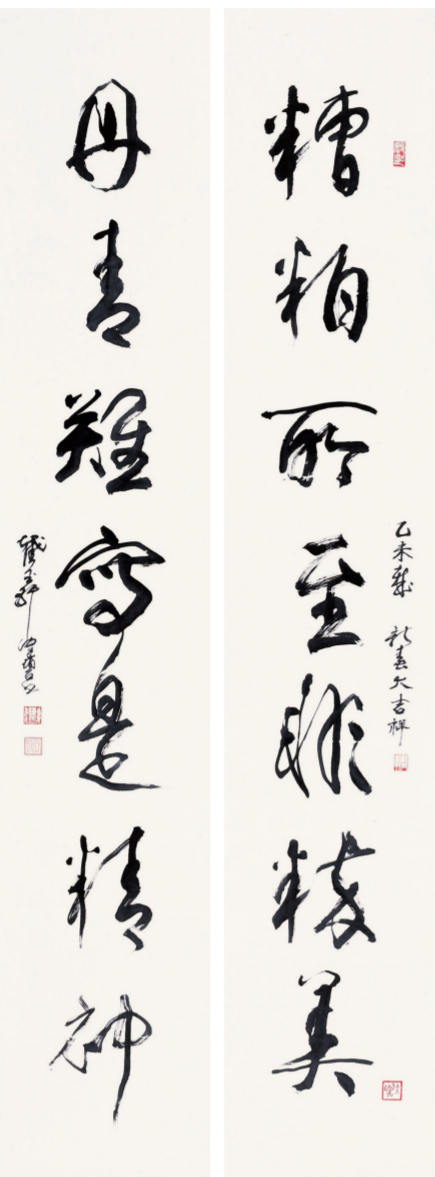 糟粕所至非粹美
乙未歲 新春大吉祥
丹青難寫是精神